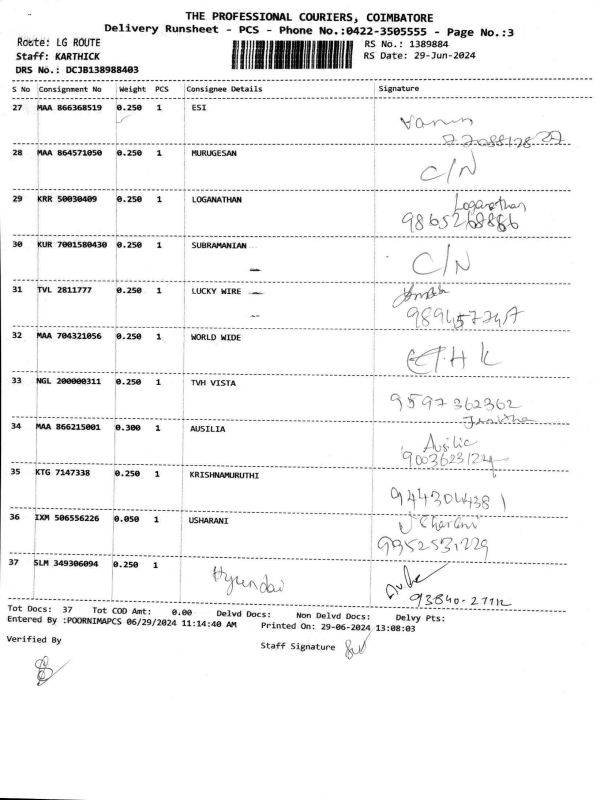 THE PROFESSIONAL COURIERS, COIMBATORE
Delivery Runsheet - PCS - Phone No.:0422-3505555 - Page No.:3
Route: LG ROUTE RS No.: 1389884
Staff: KARTHICK RS Date: 29-Jun-2024
DRS No.: DCJB138988403
S No Consignment No Weight PCS Consignee Details Signature
27 MAA 866368519 0.250 1 ESI
28 MAA 864571050 0.250 1 MURUGESAN
C/N
29 KRR 50030409 0.250 1 LOGANATHAN Loganathan
30 KUR 7001580430 0.250 1 SUBRAMANIAN
C/N
31 TVL 2811777 0.250 1 LUCKY WIRE
32 MAA 704321056 0.250 1 WORLD WIDE
33 NGL 200000311 0.250 1 TVH VISTA
9597362362
34 MAA 866215001 0.300 1 AUSILIA
35 KTG 7147338 0.250 1 KRISHNAMURUTHI
36 IXM 506556226 0.050 1 USHARANI
9952531229
37 SLM 349306094 0.250 1 Hyundai
Tot Docs: 37 Tot COD Amt: 0.00 Delvd Docs: Non Delvd Docs: Delvy Pts:
Entered By :POORNIMAPCS 06/29/2024 11:14:40 AM Printed On: 29-06-2024 13:08:03
Verified By Staff Signature